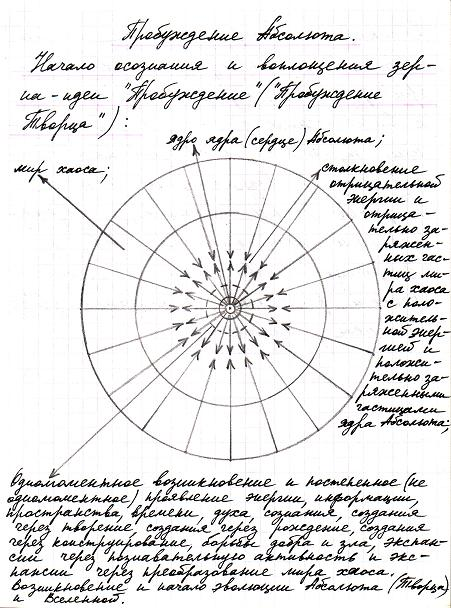 Пробуждение Абсолюта.
Начало осознания и воплощения зер-
на-идеи "Пробуждение" ("Пробуждение
Творца"):
ядро ядра (сердце) Абсолюта;
мир хаоса;
столкновение
отрицательной
энергии и
отрица-
тельно за-
ряжен-
ных час-
тиц ми-
ра хаоса
с поло-
житель-
ной энер-
гией и
положи-
тельно за-
ряженными
частицами
ядра Абсолюта;
Одномоментное возникновение и постепенное (не
одномоментное) проявление энергии, информации,
пространства, времени, духа, сознания, создания
через творение, создания через рождение, создания
через конструирование, борьбы добра и зла, экспан-
сии через познавательную активность и экс-
пансии через преобразование мира хаоса.
Возникновение и начало эволюции Абсолюта (Творца)
и Вселенной.